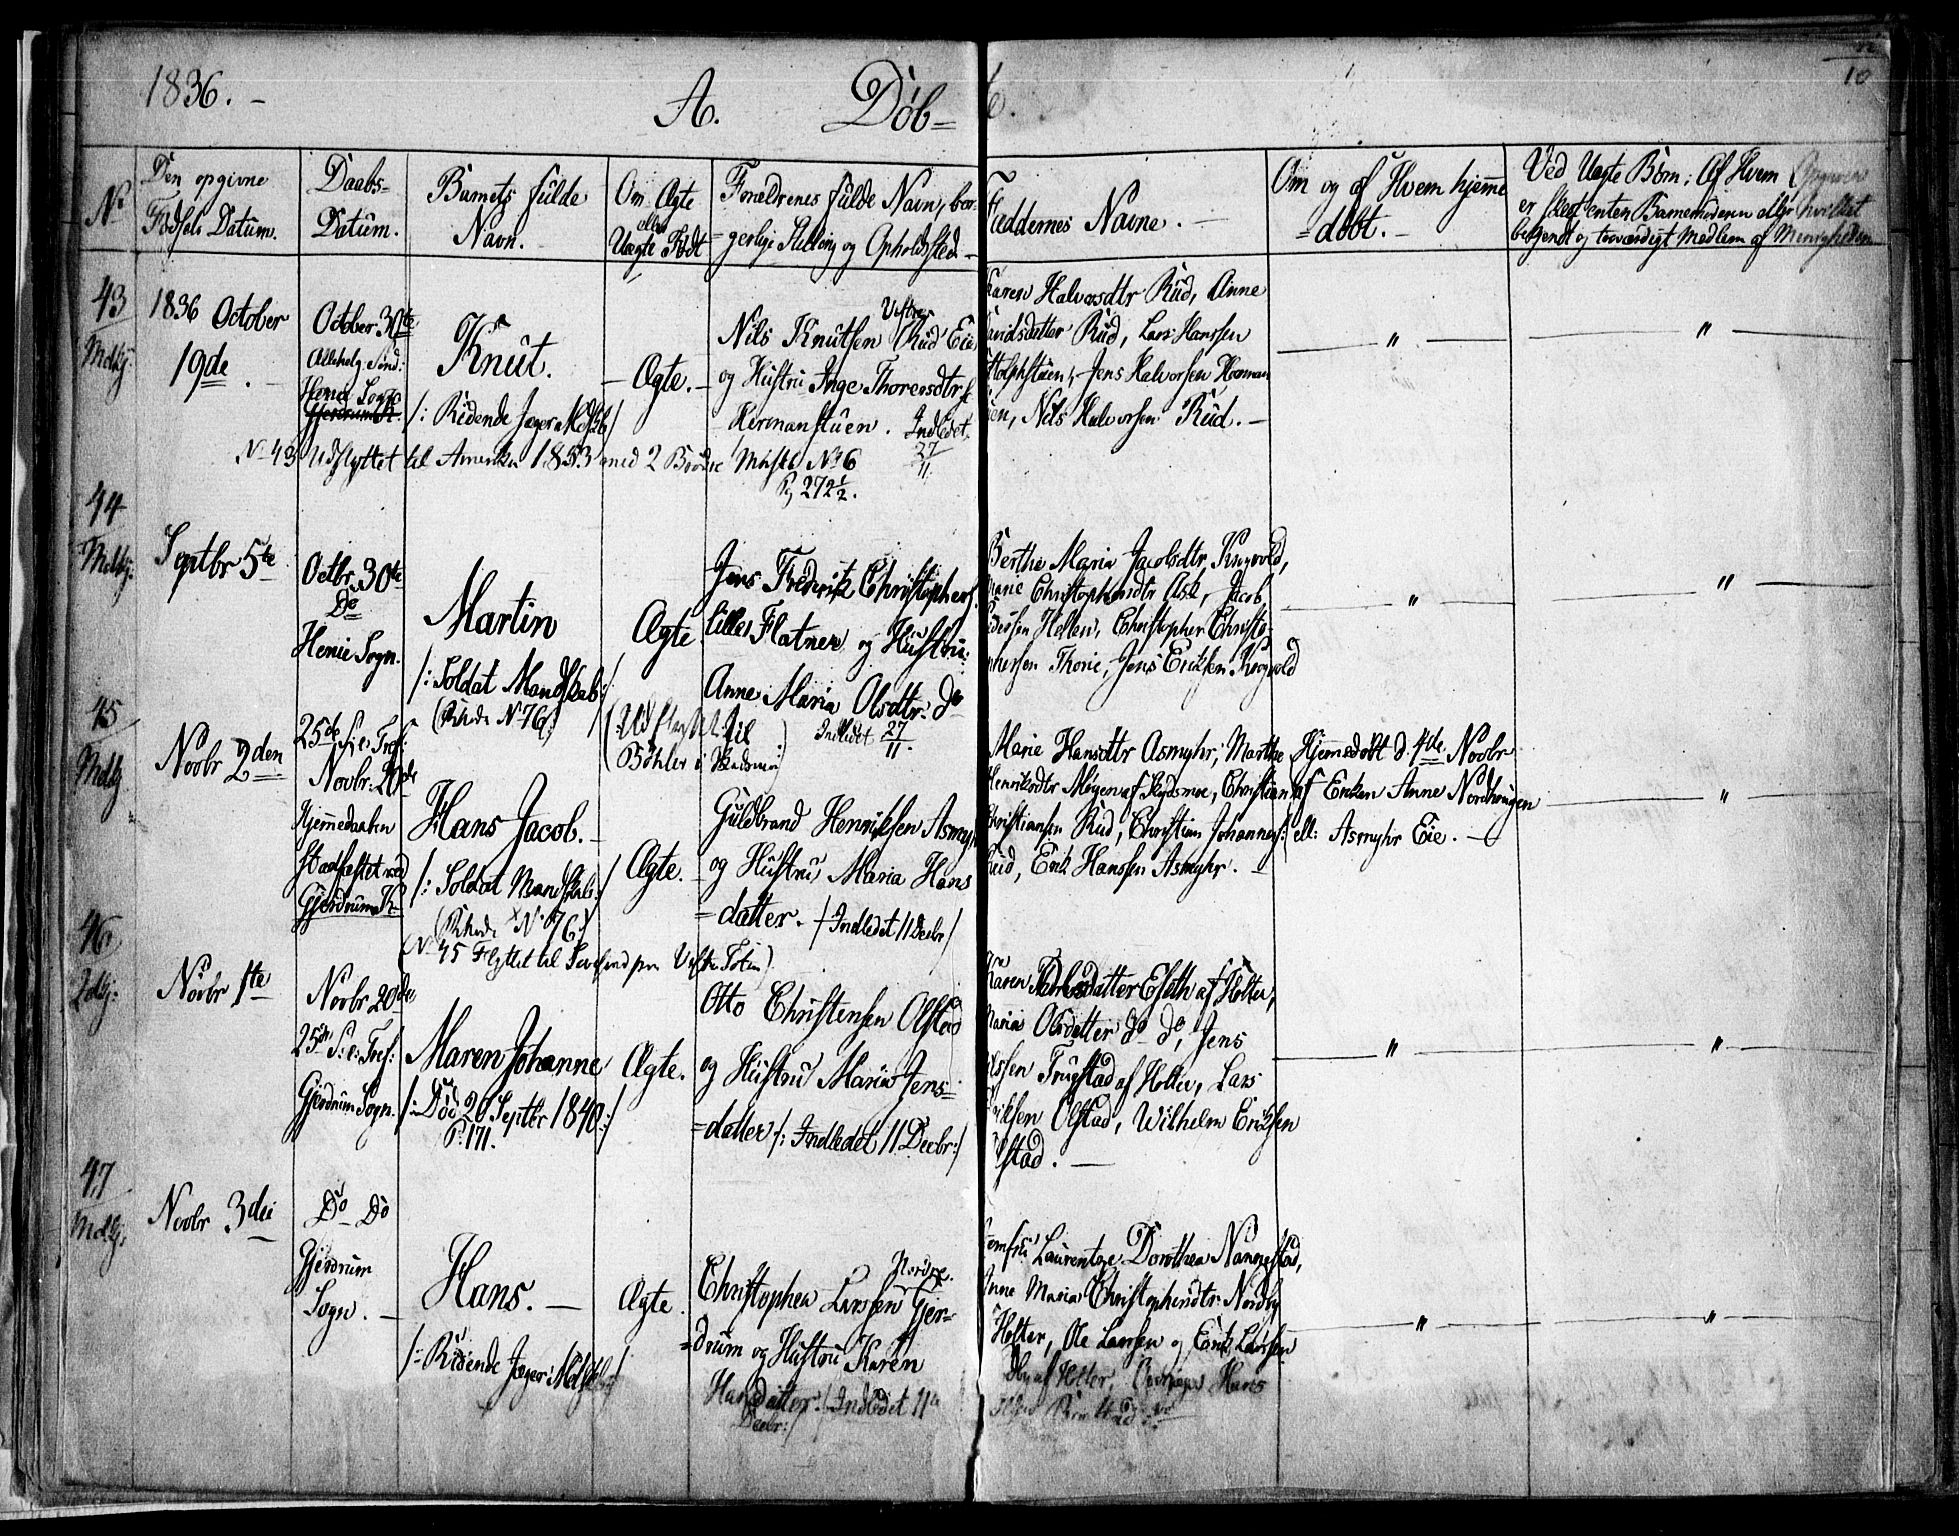 1836. –
A. Døb=
10
No
Den opgivne
Fødsels Datum.
Daabs-
Datum.
Barnets fulde
Navn.
Om Ægte
eller
Uægte Født
Forældrenes fulde Navn, bor-
gerlige Stilling og Opholdssted –
Faddernes Navne. –
Om og af Hvem hjemme
=døbt. –
Ved Uægte Børn: Af Hvem
er skeet enten Barnemoderen eller hvilket
bekjendt og troværdigt Medlem af Menigheden
43
Mdkj.
1836 October
19de
October 30te
Allehelg. Sønd:
Henie Sogn
Gjerdrum K.
Knut.
/: Ridende Jæger Mdsk/
– Ægte. –
Vestre
Nils Knutsen Rud Eie
og Hustru Inge Thoresdtr
Hermanstuen. Indledet
27
11
Karen Halvorsdtr Rud, Anne
Rud, Lars Hanssen
Jens Halvorsen Herman
Nils Halvorsen Rud. –
"
"
No 43 Udflyttet til Amerika 1853 med 2 Brødre No 6
Pg 272½.
44
Mdkj.
Septbr 5te
Octbr. 30te
Do
Henie Sogn.
Martin
/: Soldat Mandskab:/
No 76
Ægte.
Jens Fredrik Christophers.
lille Flatner og Hustru:
Anne Maria Olsdtr. do
Indledet 27
11.
(Udflyttet til
Berthe Maria Jacobsdtr, Krogvold,
Marie Christophersdtr Ask, Jacob
Hellen, Christopher Christo-
phersen Thorie, Jens Ericksen Krogvold
"
"
45
Mdkj
Novbr 2den
25de S: e: Tref:
Novbr. 20de
Hjemmedaaben
stadfæstet ved
Gjerdrum K
Hans Jacob. –
/: Soldat Mandskab:/
No 76
Ægte.
Guldbrand Henriksen Asmyhr
og Hustru Maria Hans
=datter. /: Indledet 11 Decbr/
Marie Hansdtr Asmyhr, Marthe
Henriksdtr Møgen af Skydsmoe, Christian
Christiansen Rud, Christian Johannes:
Rud, Erik Hanssen Asmyhr. –
Hjemmedøbt d. 4de Novbr
af Enken Anne Nordhougen
ell: Asmyhr Eie. –
"
No 45 Flyttet til
46
Novbr 1te
Novbr 20de
25de S: e: Tref:
Gjerdrum Sogn.
Maren Johanne
/: Død 26 Septbr 1840:/
P. 171.
Ægte.
Otto Christensen Olstad
og Hustru Maria Jens-
=datter /: Indledet 11 Decbr:/
Karen af Holter,
Maria Olsdatter do do, Jens
Fruestad af Holter, Lars
Olstad, Wilhelm Eriksen
Olstad. –
"
"
47
Mdkj.
Novbr 3die
Do Do
Gjerdrum
Sogn. –
Hans. –
/: Ridende Jæger:
Ægte.
Nordre
Christopher Larssen Gjer-
=drum og Hustru Karen
Hansdatter. /: Indledet 11
Decbr:/
Jomfru Laurentze Dorothea Nannestad,
Anne Maria Christophersdtr Nordby
Holter, Ole Larssen og Erik Larssen
af Holter, Hans
"
"